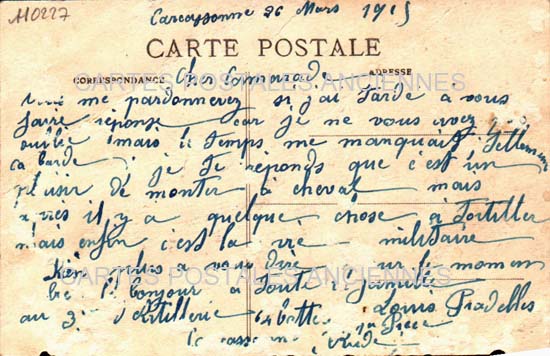 110227
Carcassonne 26 Mars 1915
CARTE POSTALE
CORRESPONDANCE Cher Camarade ADRESSE
CARTES POSTALES ANCIENNES
me pardonnerez si j'ai tardé a vous
faire réponse car je ne vous avez pas
oublié mais le temps me manquait tellement
ca barde je te réponds que c'est un
plaisir de monter a cheval mais
après il y a quelque chose a tortiller
mais enfin c'est la vie militaire
Rien plus a vous dire sur le moment
CARTES POSTALES ANCIENNES
le bonjour a toute la famille
Louis Pradelles
au 3e d'Artillerie 1re Pièce
Carcassonne Aude